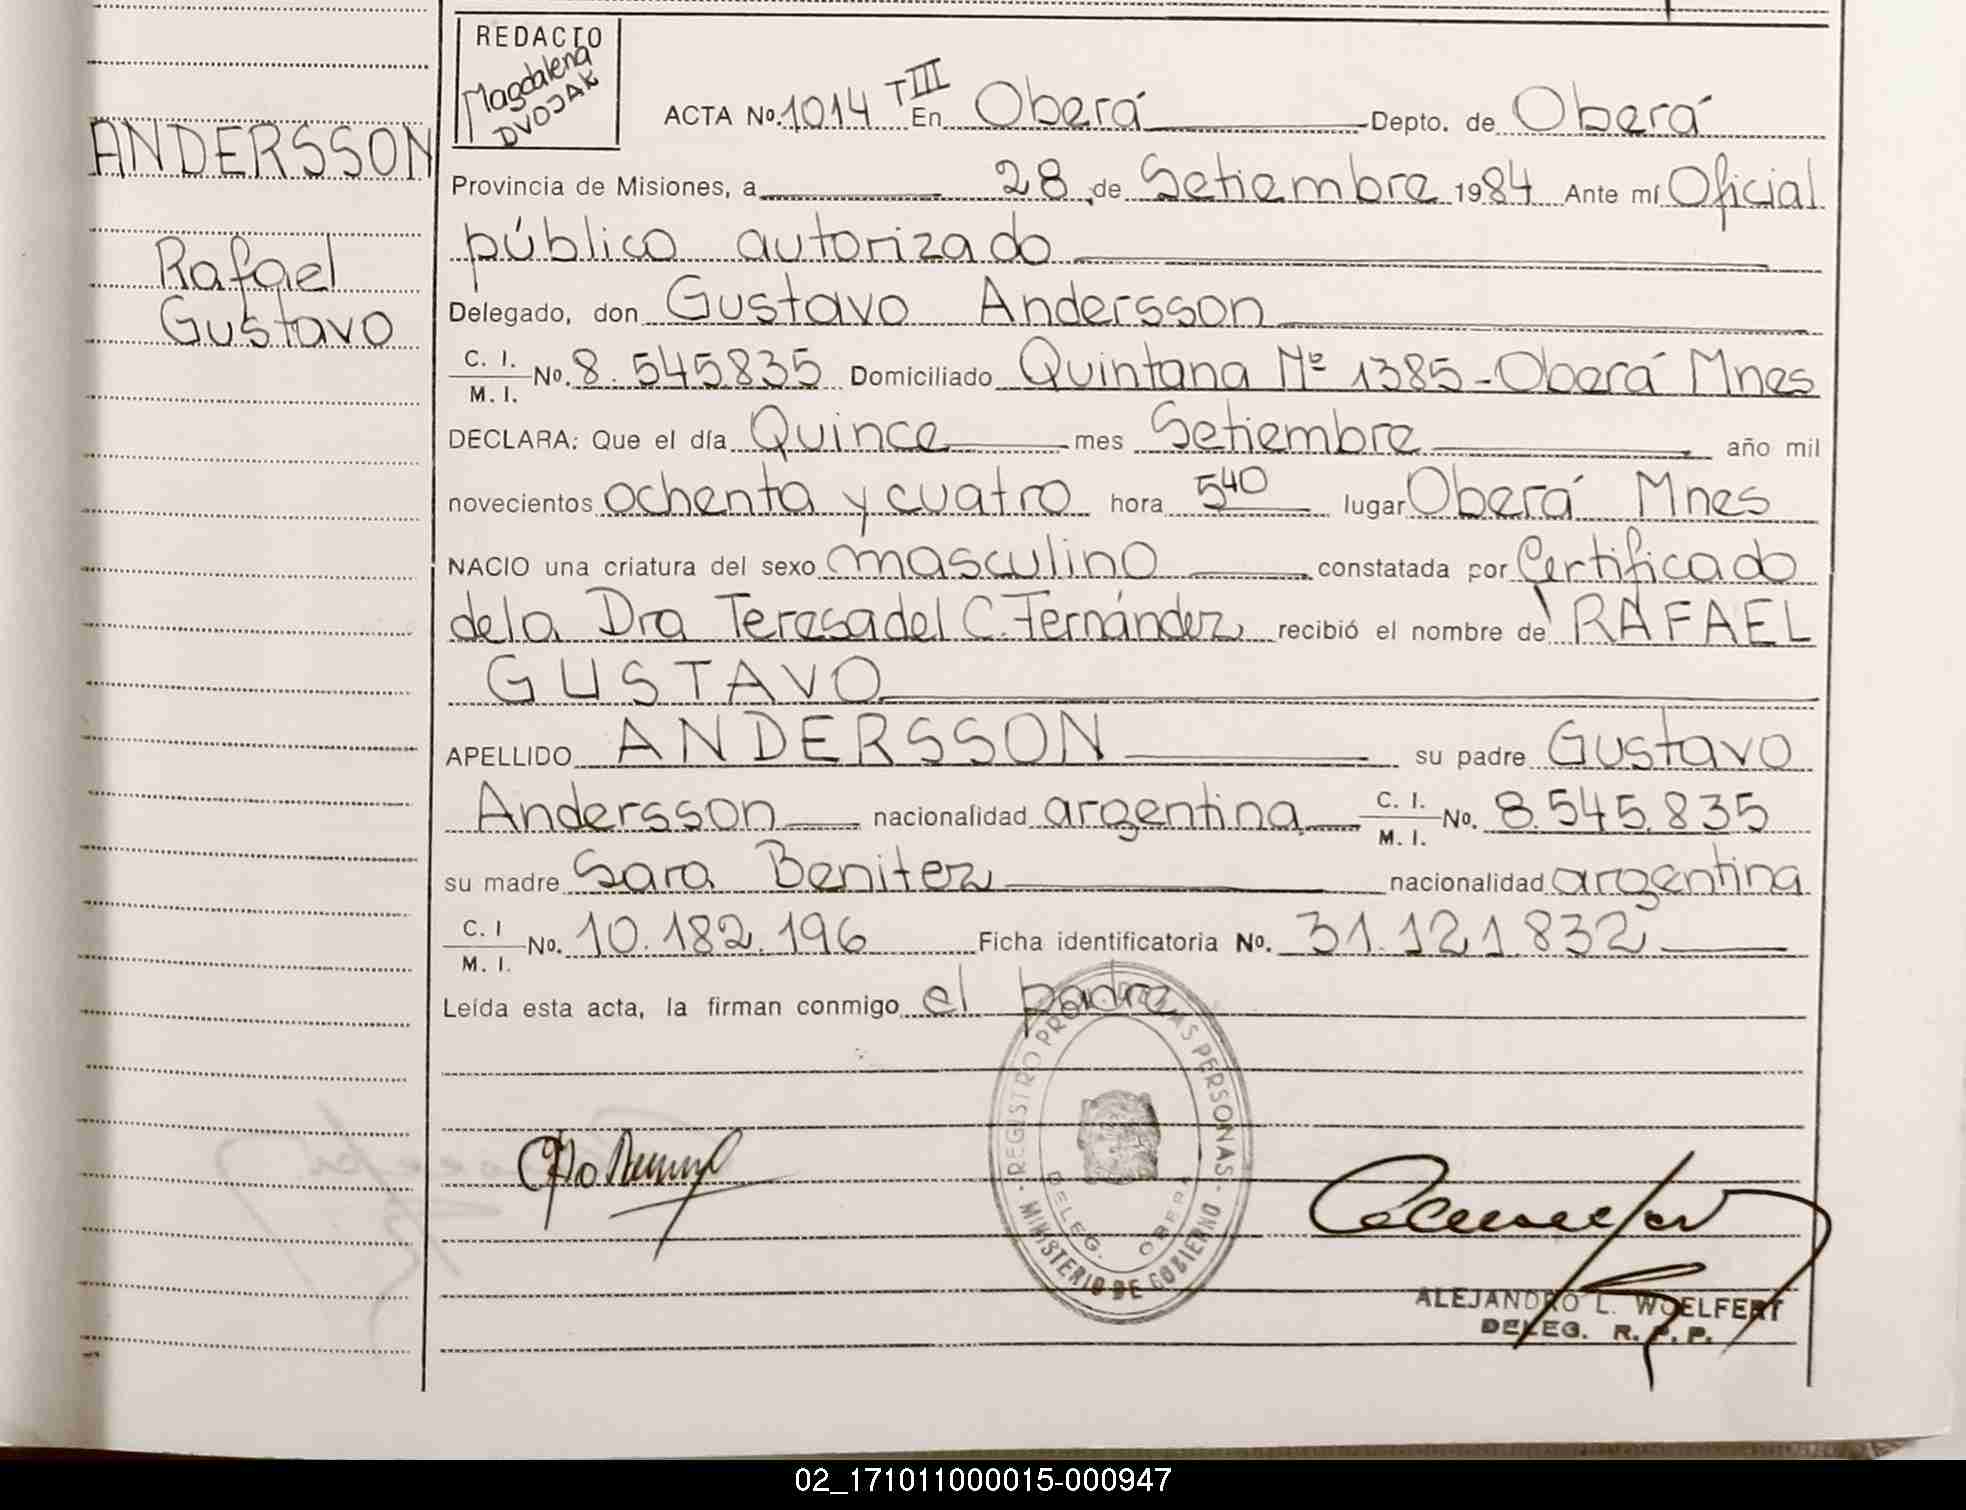 REDACTO
Magdalena
DVOJAK
ANDERSSON
Rafael
Gustavo
ACTA No. 1014 TIII En Oberá Depto. de Oberá
Provincia de Misiones, a 28 de Setiembre 1984 Ante mí Oficial
público autorizado
Delegado, don Gustavo Andersson
C. I. / M. I. No. 8.545835 Domiciliado Quintana Nº 1385-Oberá Mnes
DECLARA: Que el día Quince mes Setiembre año mil
novecientos ochenta y cuatro hora 5 40 lugar Oberá Mnes
NACIO una criatura del sexo masculino constatada por Certificado
de la Dra Teresa del C. Fernández recibió el nombre de RAFAEL
GUSTAVO
APELLIDO ANDERSSON su padre Gustavo
Andersson nacionalidad argentina C. I. / M. I. No. 8.545.835
su madre Sara Benitez nacionalidad argentina
C. I / M. I. No. 10.182.196 Ficha identificatoria No. 31.121.832
Leída esta acta, la firman conmigo el padre
REGISTRO PROV. DE LAS PERSONAS
MINISTERIO DE GOBIERNO
DELEG. OBERA
ALEJANDRO L. WOELFERT
DELEG. R. P. P.
02_171011000015-000947